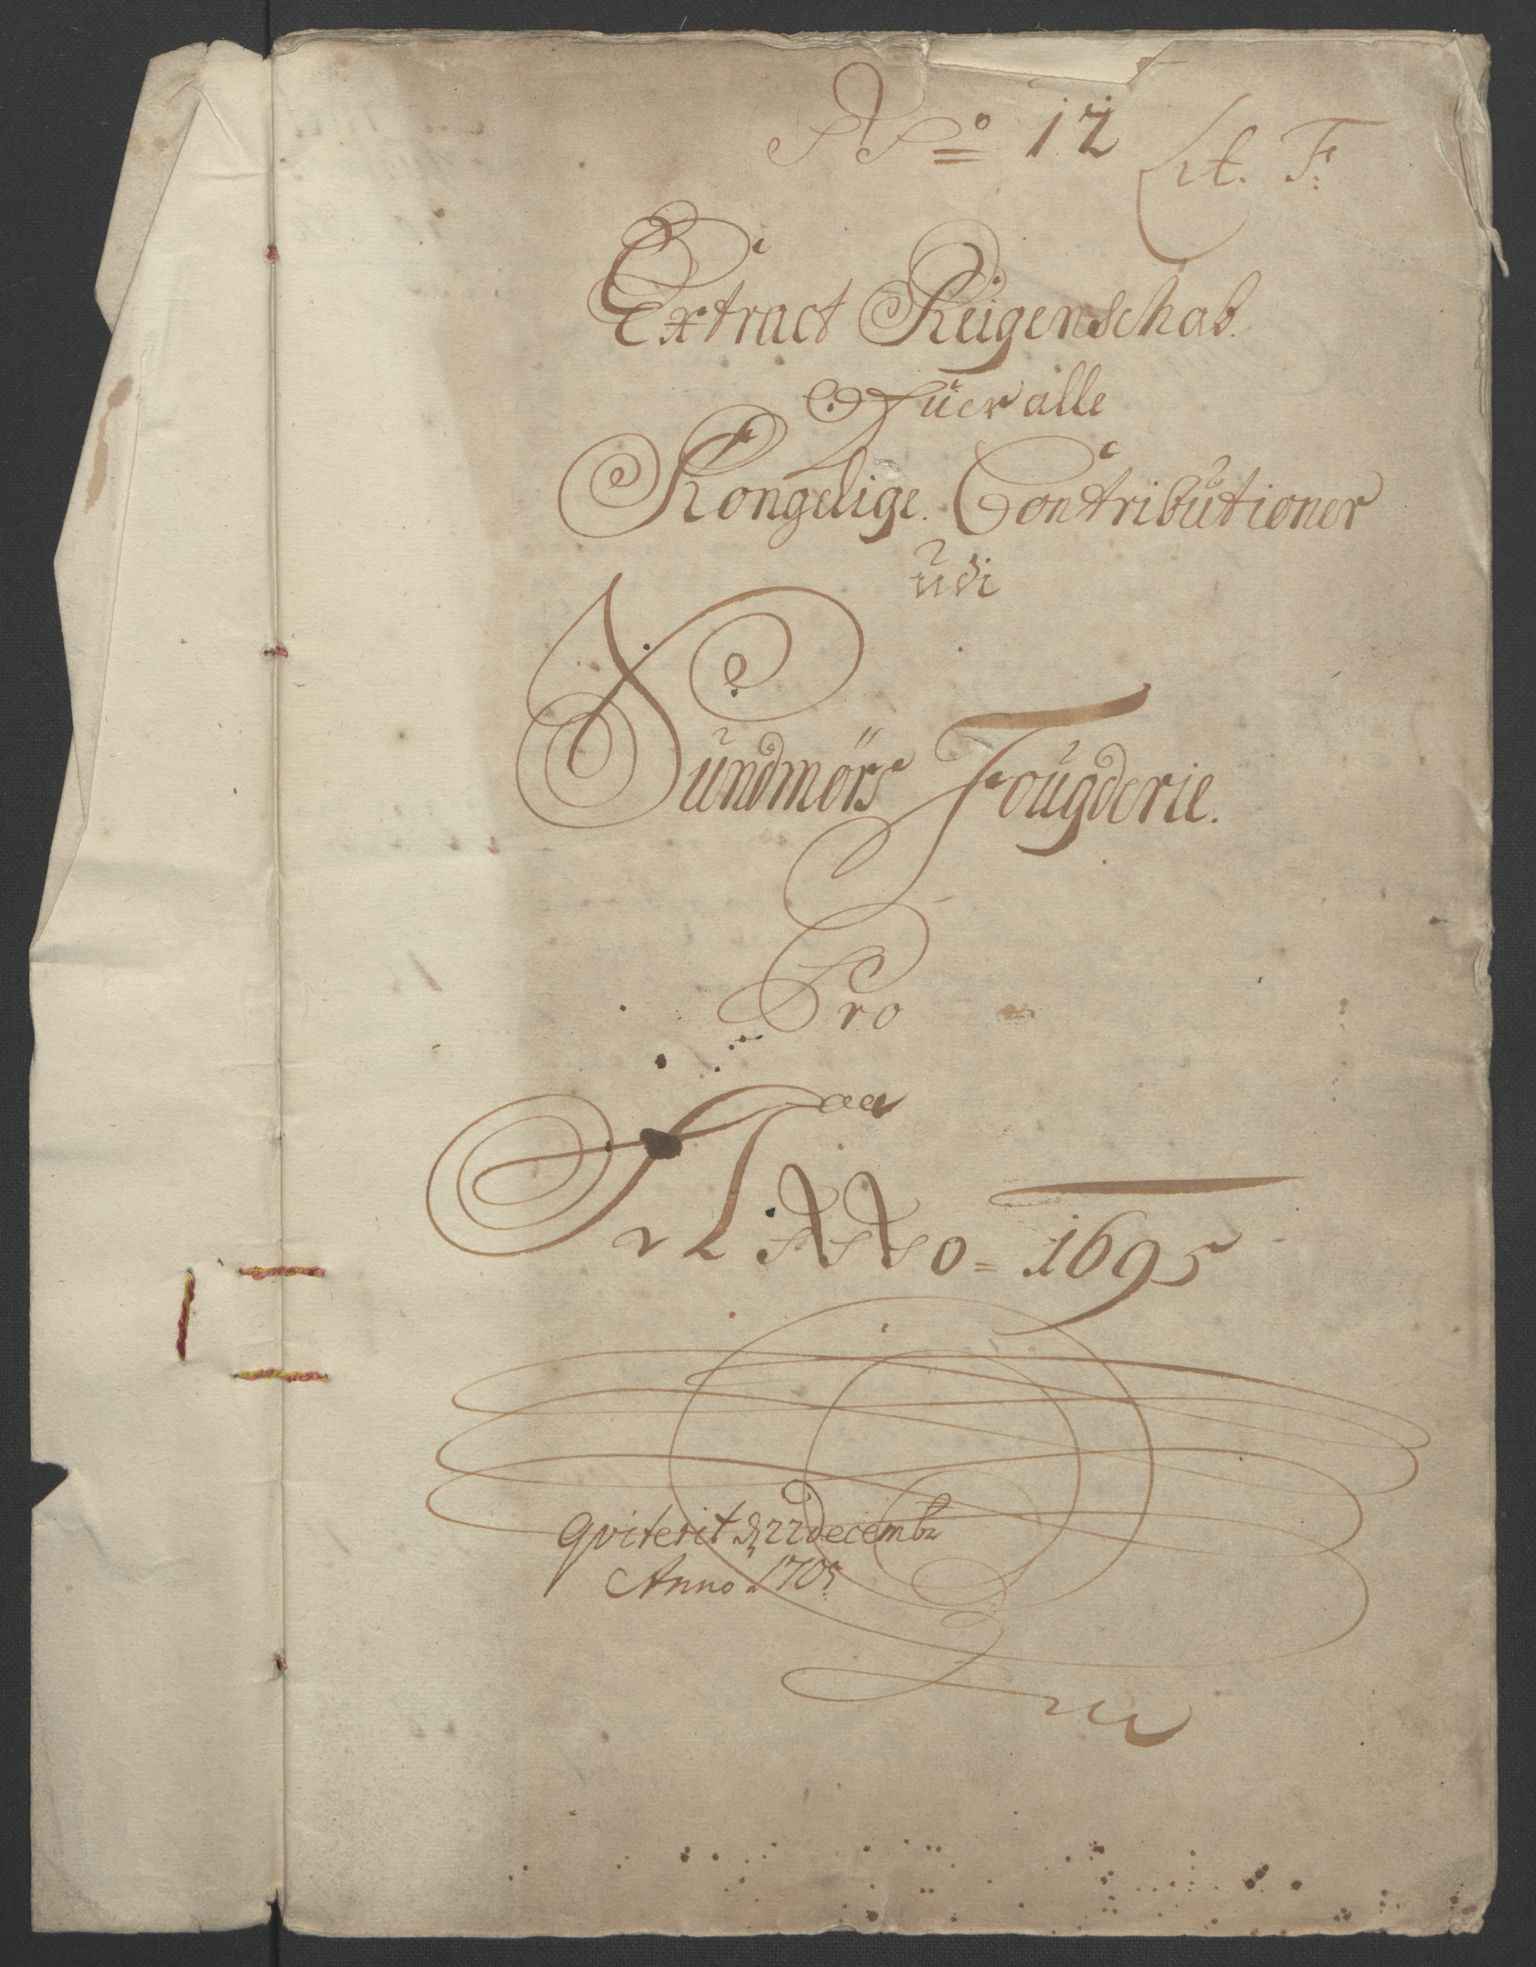 No 12 Lit. F:
Extract Reigenschab.
Ofuer alle
Kongelige Contributioner
udi
Sundmørs Fougderie.
Pro
Anno 1695
qviterit d 22 decembr
Anno 1705